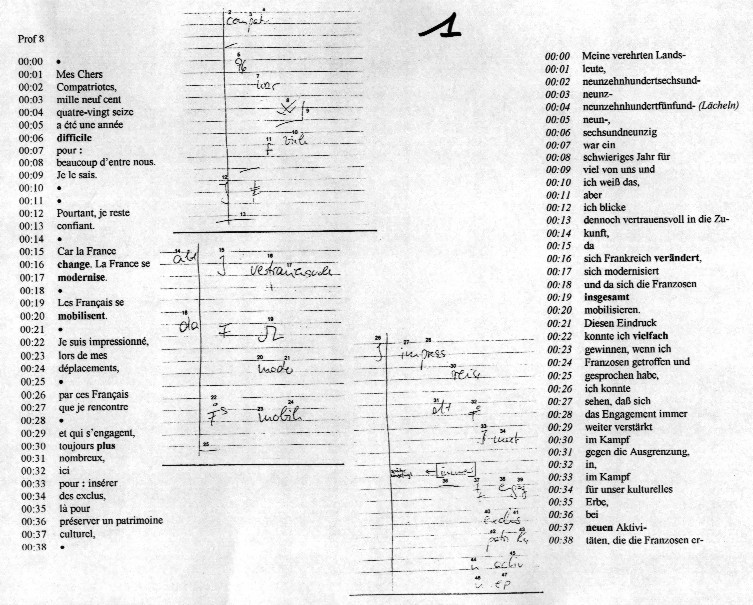 1
Prof 8
00:00 •
00:01 Mes Chers
00:02 Compatriotes,
00:03 mille neuf cent
00:04 quatre-vingt seize
00:05 a été une année
00:06 difficile
00:07 pour :
00:08 beaucoup d'entre nous.
00:09 Je le sais.
00:10 •
00:11 •
00:12 Pourtant, je reste
00:13 confiant.
00:14 •
00:15 Car la France
00:16 change. La France se
00:17 modernise.
00:18 •
00:19 Les Français se
00:20 mobilisent.
00:21 •
00:22 Je suis impressionné,
00:23 lors de mes
00:24 déplacements,
00:25 •
00:26 par ces Français
00:27 que je rencontre
00:28 •
00:29 et qui s'engagent,
00:30 toujours plus
00:31 nombreux,
00:32 ici
00:33 pour : insérer
00:34 des exclus,
00:35 là pour
00:36 préserver un patrimoine
00:37 culturel,
00:38 •
compatr
96
war
viele
da
mode
mobili
impress
reise
immer
00:00 Meine verehrten Lands-
00:01 leute,
00:02 neunzehnhundertsechsund-
00:03 neunz-
00:04 neunzehnhundertfünfund- (Lächeln)
00:05 neun-,
00:06 sechsundneunzig
00:07 war ein
00:08 schwieriges Jahr für
00:09 viel von uns und
00:10 ich weiß das,
00:11 aber
00:12 ich blicke
00:13 dennoch vertrauensvoll in die Zu-
00:14 kunft,
00:15 da
00:16 sich Frankreich verändert,
00:17 sich modernisiert
00:18 und da sich die Franzosen
00:19 insgesamt
00:20 mobilisieren.
00:21 Diesen Eindruck
00:22 konnte ich vielfach
00:23 gewinnen, wenn ich
00:24 Franzosen getroffen und
00:25 gesprochen habe,
00:26 ich konnte
00:27 sehen, daß sich
00:28 das Engagement immer
00:29 weiter verstärkt
00:30 im Kampf
00:31 gegen die Ausgrenzung,
00:32 in,
00:33 im Kampf
00:34 für unser kulturelles
00:35 Erbe,
00:36 bei
00:37 neuen Aktivi-
00:38 täten, die die Franzosen er-